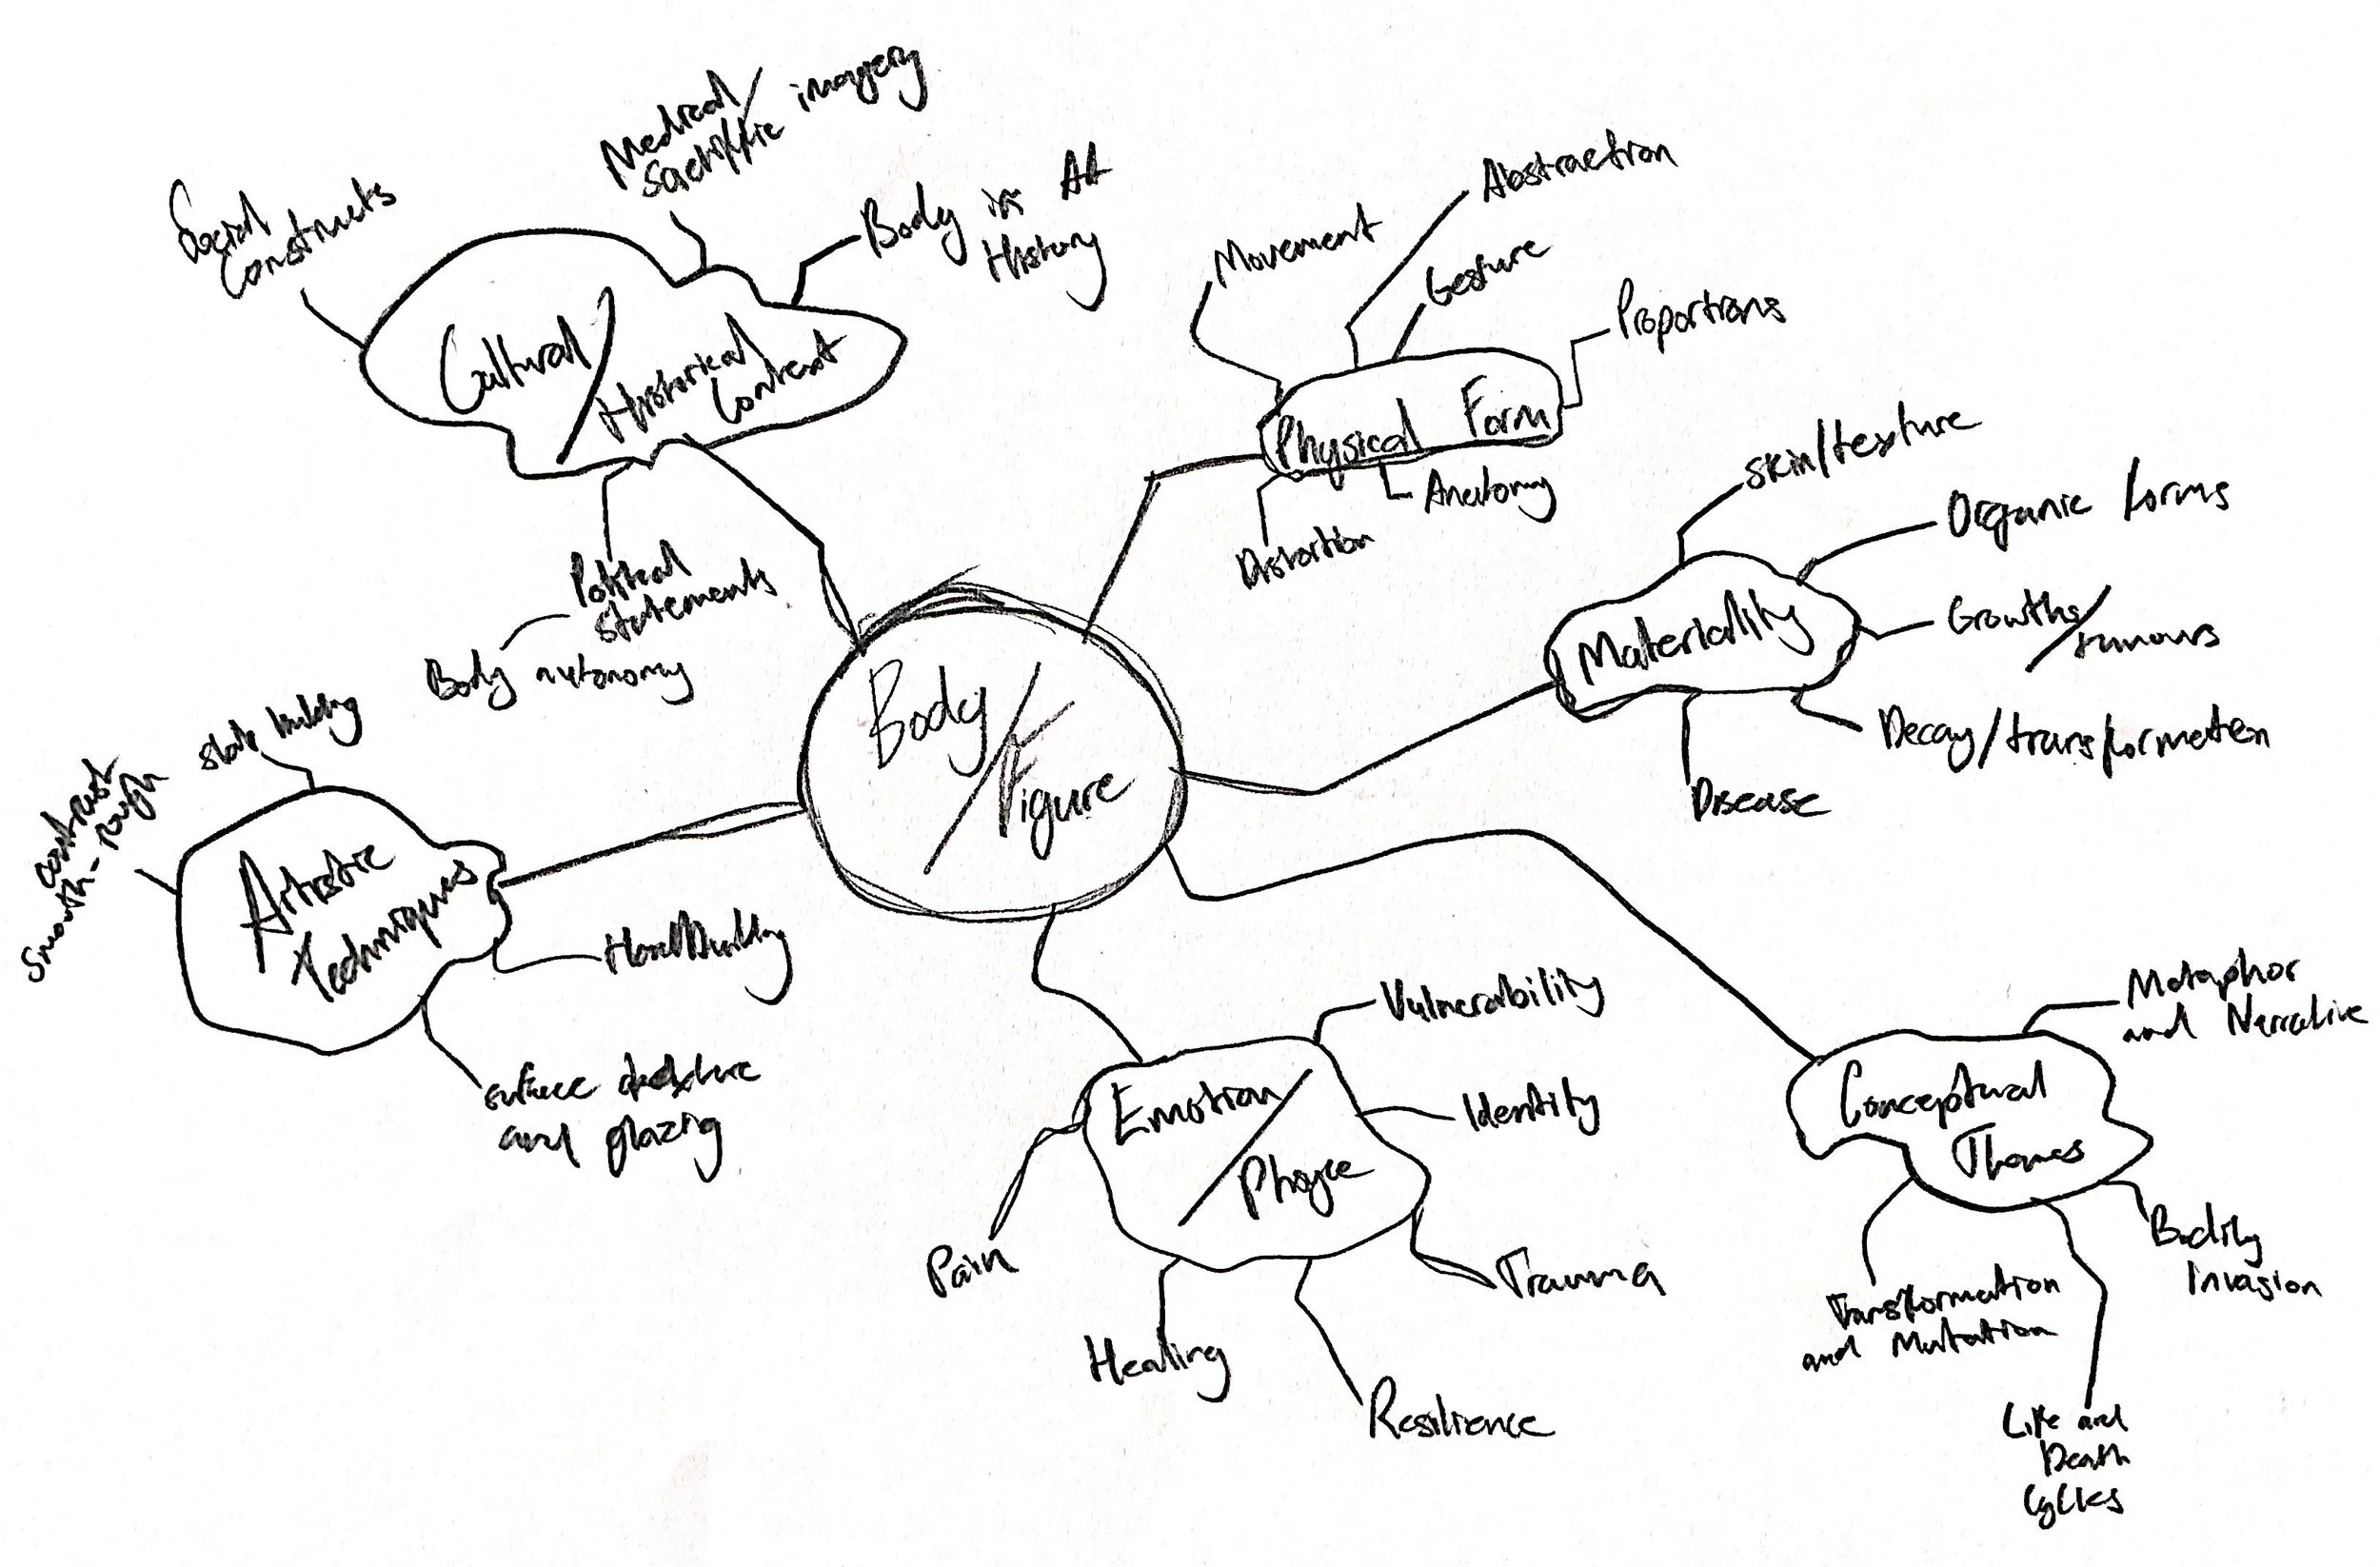 Medical/
scientific imagery
Social
Constructs
Body in Art
History
Cultural/
Historical
Context
Political
statements
Body autonomy
Movement
Abstraction
Gesture
Proportions
Physical Form
Anatomy
Distortion
skin/texture
Organic forms
Materiality
Growths/
tumours
Decay/transformation
Disease
Body/
Figure
slab building
contrast
smooth-rough
Artistic
Techniques
Handbuilding
surface texture
and glazing
Vulnerability
Emotion/
Identity
Pain
Trauma
Healing
Resilience
Metaphor
and Narrative
Conceptual
Themes
Bodily
Invasion
Transformation
and Mutation
Life and
Death
Cycles